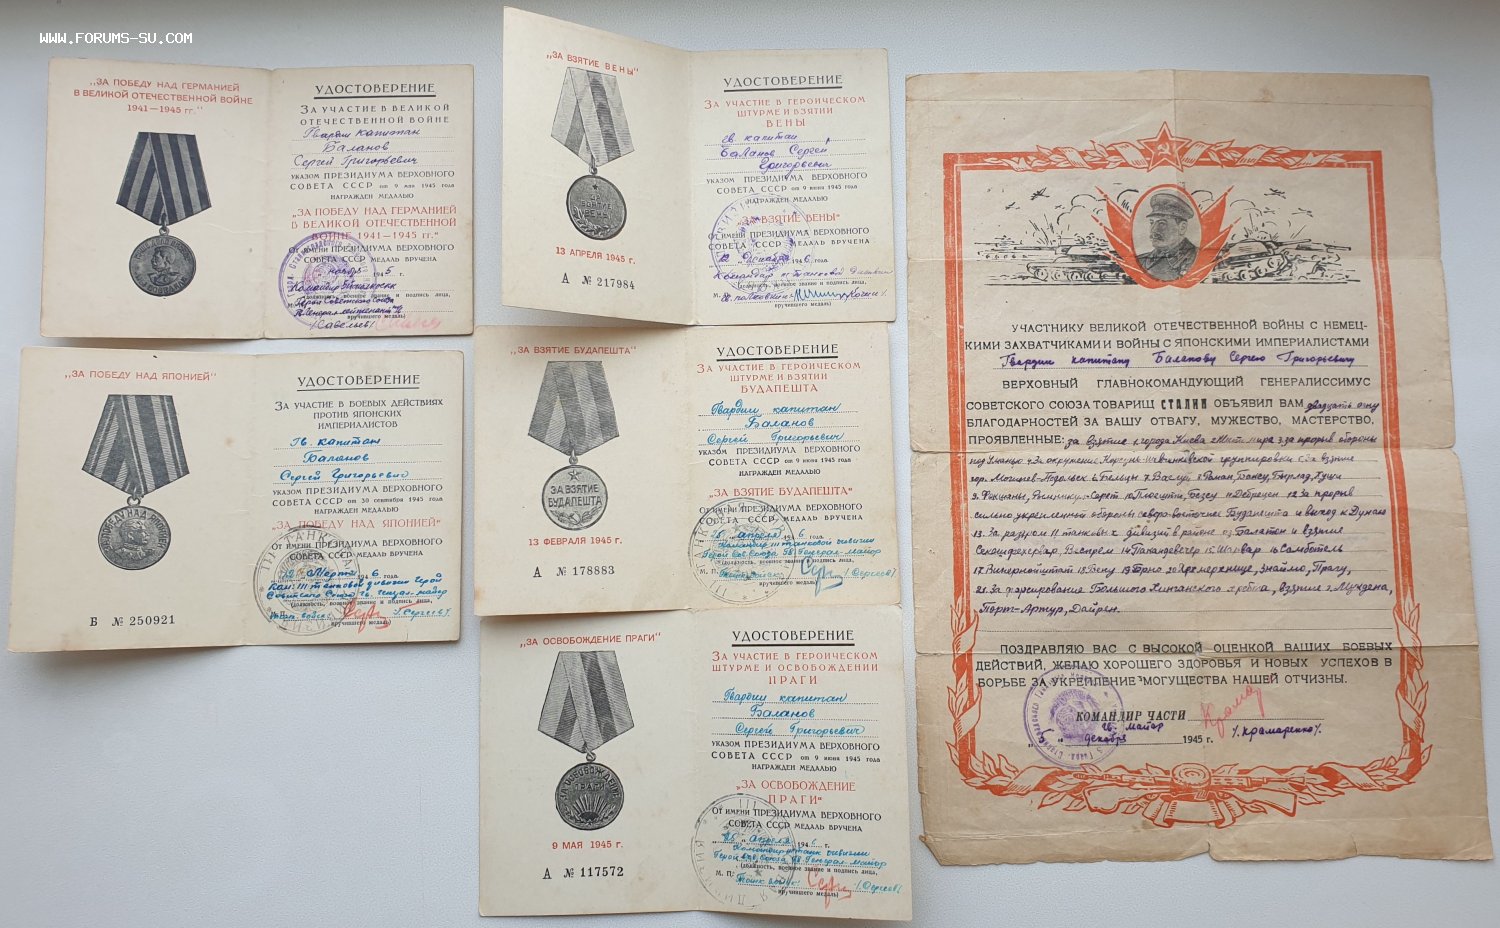 WWW.FORUMS-SU.COM
„ЗА ПОБЕДУ НАД ГЕРМАНИЕЙ
В ВЕЛИКОЙ ОТЕЧЕСТВЕННОЙ ВОЙНЕ
1941—1945 гг."
УДОСТОВЕРЕНИЕ
ЗА УЧАСТИЕ В ВЕЛИКОЙ
ОТЕЧЕСТВЕННОЙ ВОЙНЕ
Гвардии капитан
Баланов
Сергей Григорьевич
УКАЗОМ ПРЕЗИДИУМА ВЕРХОВНОГО
СОВЕТА СССР от 9 мая 1945 года
НАГРАЖДЕН МЕДАЛЬЮ
„ЗА ПОБЕДУ НАД ГЕРМАНИЕЙ
В ВЕЛИКОЙ ОТЕЧЕСТВЕННОЙ
ВОЙНЕ 1941—1945 гг."
От имени ПРЕЗИДИУМА ВЕРХОВНОГО
СОВЕТА СССР МЕДАЛЬ ВРУЧЕНА
ноября 1945 г.
Командир
Герой Советского Союза
Генерал-лейтенант
/Савельев/
„ЗА ПОБЕДУ НАД ЯПОНИЕЙ"
Б № 250921
УДОСТОВЕРЕНИЕ
ЗА УЧАСТИЕ В БОЕВЫХ ДЕЙСТВИЯХ
ПРОТИВ ЯПОНСКИХ
ИМПЕРИАЛИСТОВ
Гв. капитан
Баланов
Сергей Григорьевич
УКАЗОМ ПРЕЗИДИУМА ВЕРХОВНОГО
СОВЕТА СССР от 30 сентября 1945 года
НАГРАЖДЕН МЕДАЛЬЮ
„ЗА ПОБЕДУ НАД ЯПОНИЕЙ"
От имени ПРЕЗИДИУМА ВЕРХОВНОГО
СОВЕТА СССР МЕДАЛЬ ВРУЧЕНА
Марта 1946 года
Ком. 111 танковой дивизии Герой
Советского Союза гв. генерал-майор
(должность, военное звание и подпись лица,
вручившего медаль)
/Сергеев/
„ЗА ВЗЯТИЕ ВЕНЫ"
ЗА ВЗЯТИЕ ВЕНЫ
13 АПРЕЛЯ 1945 г.
А № 217984
УДОСТОВЕРЕНИЕ
ЗА УЧАСТИЕ В ГЕРОИЧЕСКОМ
ШТУРМЕ И ВЗЯТИИ
ВЕНЫ
гв капитан
Баланов Сергей
Григорьевич
УКАЗОМ ПРЕЗИДИУМА ВЕРХОВНОГО
СОВЕТА СССР от 9 июня 1945 года
НАГРАЖДЕН МЕДАЛЬЮ
„ЗА ВЗЯТИЕ ВЕНЫ"
От имени ПРЕЗИДИУМА ВЕРХОВНОГО
СОВЕТА СССР МЕДАЛЬ ВРУЧЕНА
декабря 1946 года
Командир танковой дивизии
(должность, военное звание и подпись лица,
М. П. полковник
вручившего медаль)
„ЗА ВЗЯТИЕ БУДАПЕШТА"
ЗА ВЗЯТИЕ БУДАПЕШТА
13 ФЕВРАЛЯ 1945 г.
А № 178883
УДОСТОВЕРЕНИЕ
ЗА УЧАСТИЕ В ГЕРОИЧЕСКОМ
ШТУРМЕ И ВЗЯТИИ
БУДАПЕШТА
Гвардии капитан
Баланов
Сергей Григорьевич
УКАЗОМ ПРЕЗИДИУМА ВЕРХОВНОГО
СОВЕТА СССР от 9 июня 1945 года
НАГРАЖДЕН МЕДАЛЬЮ
„ЗА ВЗЯТИЕ БУДАПЕШТА"
От имени ПРЕЗИДИУМА ВЕРХОВНОГО
СОВЕТА СССР МЕДАЛЬ ВРУЧЕНА
апреля 1946 г.
Командир 111 танковой дивизии
Герой Сов. Союза гв. Генерал-майор
(должность, военное звание и подпись лица,
М. П. Танк. войск /Сергеев/
вручившего медаль)
„ЗА ОСВОБОЖДЕНИЕ ПРАГИ"
ЗА ОСВОБОЖДЕНИЕ ПРАГИ
9 МАЯ 1945 г.
А № 117572
УДОСТОВЕРЕНИЕ
ЗА УЧАСТИЕ В ГЕРОИЧЕСКОМ
ШТУРМЕ И ОСВОБОЖДЕНИИ
ПРАГИ
Гвардии капитан
Баланов
Сергей Григорьевич
УКАЗОМ ПРЕЗИДИУМА ВЕРХОВНОГО
СОВЕТА СССР от 9 июня 1945 года
НАГРАЖДЕН МЕДАЛЬЮ
„ЗА ОСВОБОЖДЕНИЕ
ПРАГИ"
От имени ПРЕЗИДИУМА ВЕРХОВНОГО
СОВЕТА СССР МЕДАЛЬ ВРУЧЕНА
апреля 1946 г.
Командир танк дивизии
Герой Сов. Союза гв. Генерал-майор
(должность, военное звание и подпись лица,
М. П. Танк войск /Сергеев/
вручившего медаль)
УЧАСТНИКУ ВЕЛИКОЙ ОТЕЧЕСТВЕННОЙ ВОЙНЫ С НЕМЕЦ-
КИМИ ЗАХВАТЧИКАМИ И ВОЙНЫ С ЯПОНСКИМИ ИМПЕРИАЛИСТАМИ
Гвардии капитану Баланову Сергею Григорьевичу
ВЕРХОВНЫЙ ГЛАВНОКОМАНДУЮЩИЙ ГЕНЕРАЛИССИМУС
СОВЕТСКОГО СОЮЗА ТОВАРИЩ СТАЛИН ОБЪЯВИЛ ВАМ двадцать одну
БЛАГОДАРНОСТЕЙ ЗА ВАШУ ОТВАГУ, МУЖЕСТВО, МАСТЕРСТВО,
ПРОЯВЛЕННЫЕ: за взятие 1. города Киева 2 Житомира 3. за прорыв обороны
под Уманью 4. За окружение Корсунь-Шевченковской группировки 5. за взятие
гор. Могилев-Подольск 6. Бельцы 7. Васлуй 8. Роман, Бакеу, Бырлад, Хуши
9. Фокшаны, Рымникул-Сэрат 10. Плоешти, Бузеу 11. Дебрецен 12. за прорыв
сильно укрепленной обороны северо-восточнее Будапешта и выход к Дунаю
13. За разгром 11 танковых дивизий в районе оз. Балатон и взятие
Секешфехервар, Веспрем 14. Папа, Девечер 15. Шарвар 16.
17. Винернойштадт 18. Вену 19. Брно 20. Яромержице, Знаймо, Прагу,
21. За форсирование Большого Хинганского хребта, взятие г. Мукдена,
Порт-Артур, Дайрен.
ПОЗДРАВЛЯЮ ВАС С ВЫСОКОЙ ОЦЕНКОЙ ВАШИХ БОЕВЫХ
ДЕЙСТВИЙ, ЖЕЛАЮ ХОРОШЕГО ЗДОРОВЬЯ И НОВЫХ УСПЕХОВ В
БОРЬБЕ ЗА УКРЕПЛЕНИЕ МОГУЩЕСТВА НАШЕЙ ОТЧИЗНЫ.
КОМАНДИР ЧАСТИ
гв. майор
декабря 1945 г. /Крамаренко/